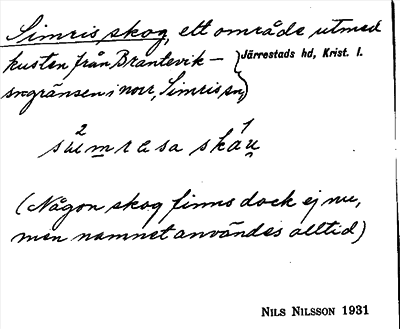 Simris skog, ett område utmed
kusten från Brantevik –
sngränsen i norr, Simris sn
Järrestads hd, Krist. l.
(Någon skog finns dock ej nu,
men namnet användes alltid)
NILS NILSSON 1931